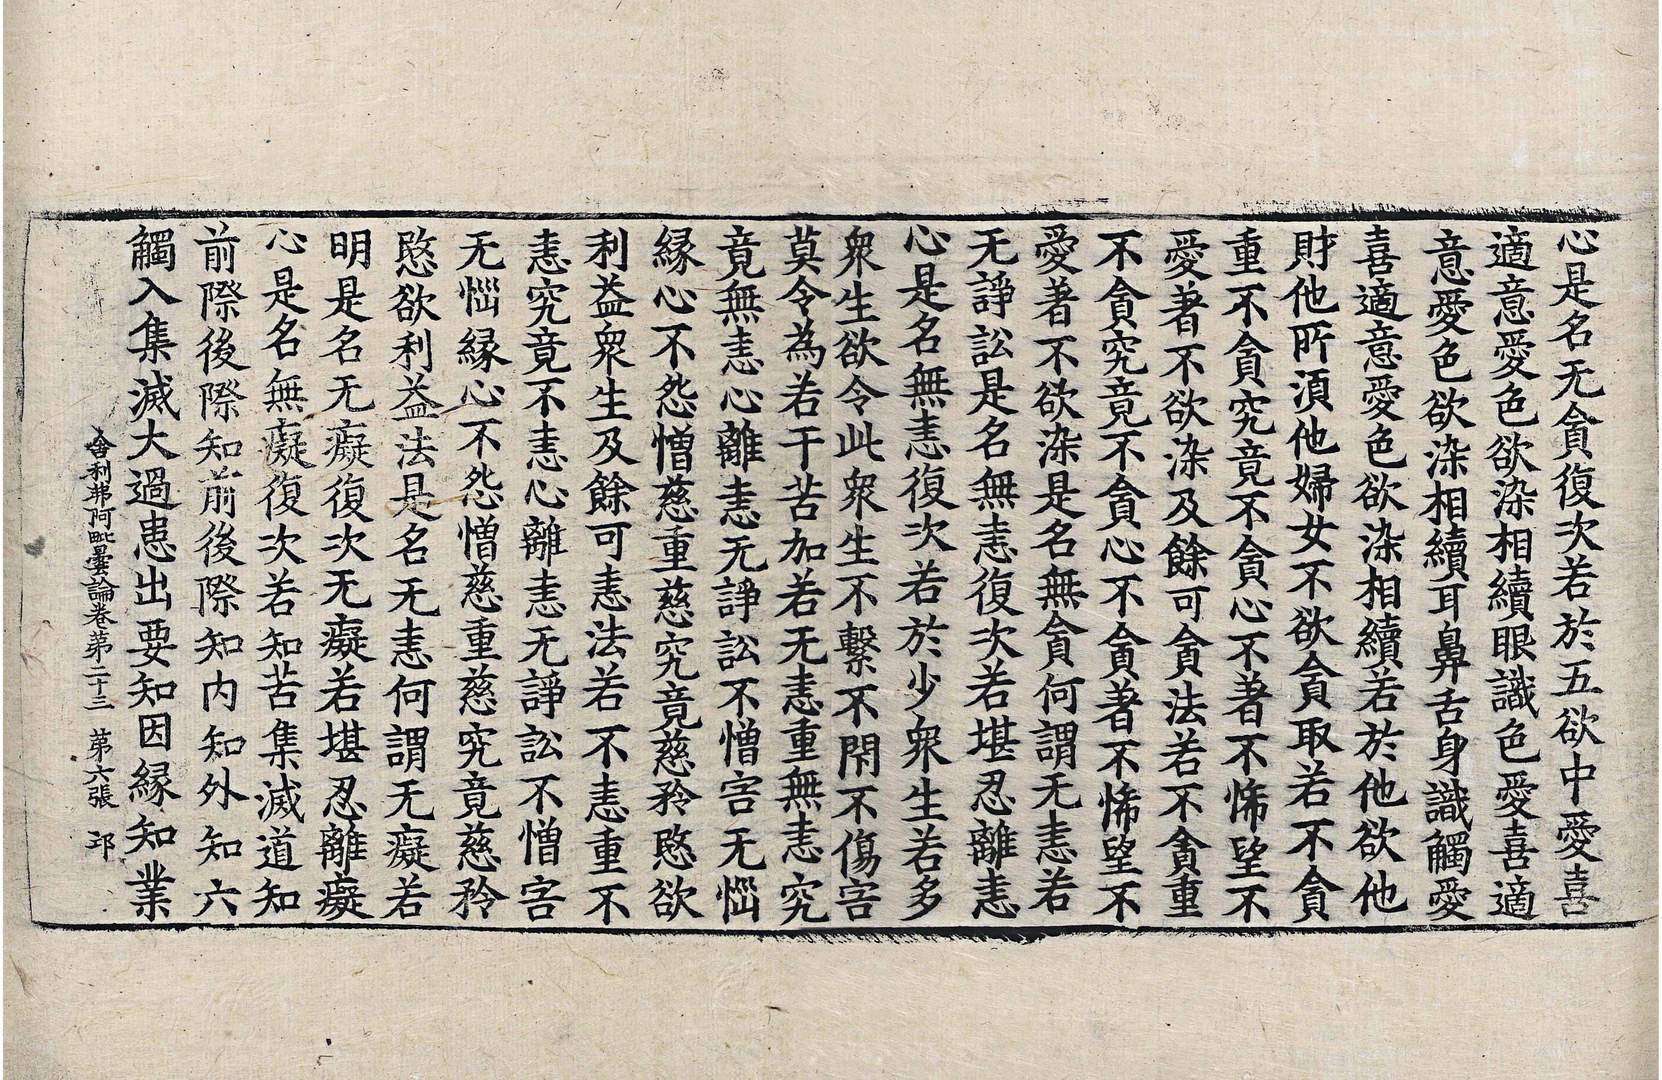 心是名无貪復次若於五欲中愛喜
適意愛色欲染相續眼識色愛喜適
意愛色欲染相續耳鼻舌身識觸愛
喜適意愛色欲染相續若於他欲他
財他所湏他婦女不欲貪取若不貪
重不貪究竟不貪心不著不悕望不
愛著不欲染及餘可貪法若不貪重
不貪究竟不貪心不貪著不悕望不
愛著不欲染是名無貪何謂无恚若
无諍訟是名無恚復次若堪忍離恚
心是名無恚復次若於少衆生若多
衆生欲令此衆生不繫不閇不傷害
莫令為若干苦加若无恚重無恚究
竟無恚心離恚无諍訟不憎害无惱
縁心不怨憎慈重慈究竟慈矜愍欲
利益衆生及餘可恚法若不恚重不
恚究竟不恚心離恚无諍訟不憎害
无惱縁心不怨憎慈重慈究竟慈矜
愍欲利益法是名无恚何謂无癡若
明是名无癡復次无癡若堪忍離癡
心是名無癡復次若知苦集滅道知
前際後際知前後際知内知外知六
觸入集滅大過患出要知因縁知業
舍利弗阿毗曇論卷第二十三　第六張　邛